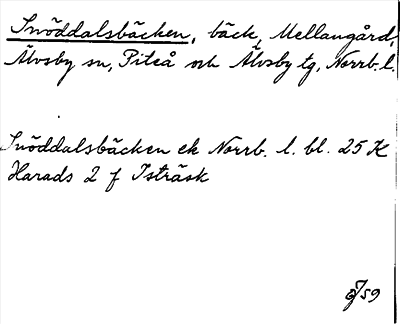 Snöddalsbäcken, bäck, Mellangård,
Älvsby sn, Piteå och Älvsby tg, Norrb. l.
Snöddalsbäcken ek Norrb. l. bl. 25 K
Harads 2 f Isträsk
/59